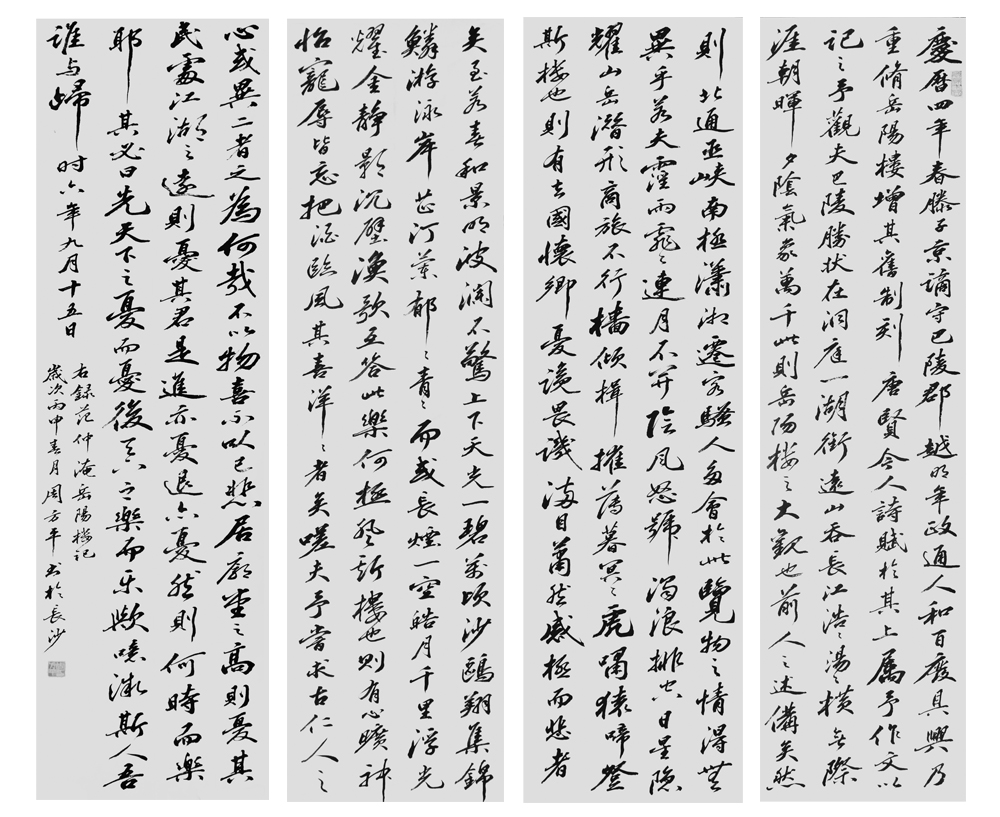 慶曆四年春滕子京謫守巴陵郡越明年政通人和百廢具興乃
重脩岳陽樓增其舊制刻唐賢今人詩賦於其上属予作文以
記之予觀夫巴陵勝狀在洞庭一湖銜遠山吞長江浩〻湯〻橫無際
涯朝暉夕陰氣象萬千此則岳陽楼之大觀也前人之述備矣然
則北通巫峽南極瀟湘遷客騷人多會於此覽物之情得無
異乎若夫霪雨霏〻連月不开陰风怒號濁浪排空日星隱
耀山岳潛形商旅不行檣傾楫摧薄暮冥〻虎嘯猿啼登
斯楼也則有去國懷鄉憂讒畏譏滿目蕭然感極而悲者
矣至若春和景明波瀾不驚上下天光一碧萬頃沙鷗翔集錦
鱗游泳岸芷汀蘭郁〻青〻而或長煙一空皓月千里浮光
耀金静影沉璧漁歌互答此樂何極登斯樓也則有心曠神
怡寵辱皆忘把酒臨風其喜洋〻者矣嗟夫予嘗求古仁人之
心或異二者之為何哉不以物喜不以己悲居廟堂之高則憂其
民處江湖之遠則憂其君是進亦憂退亦憂然則何時而樂
耶其必曰先天下之憂而憂後天下之樂而乐歟噫微斯人吾
誰与歸时六年九月十五日
右録范仲淹岳陽楼記
歲次丙申春月周方平书於長沙